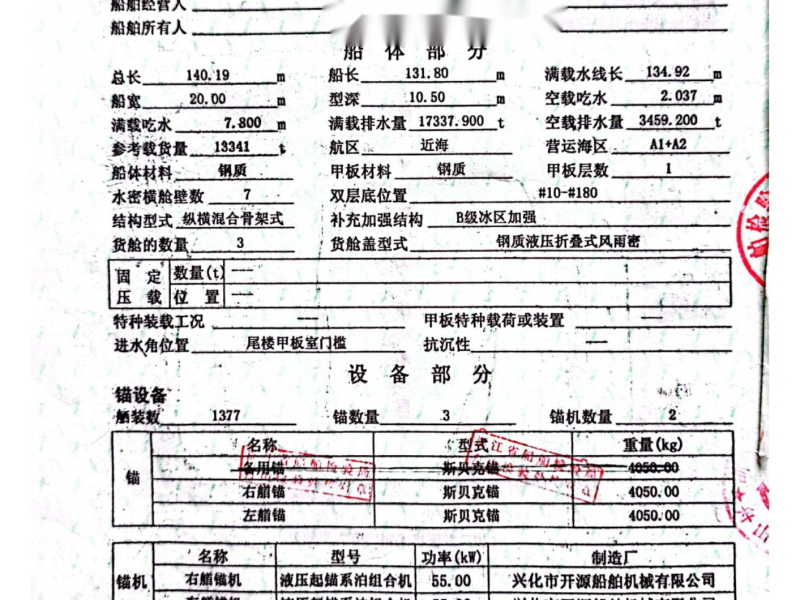 船舶经营人
船舶所有人
船 体 部 分
总长 140.19 m 船长 131.80 m 满载水线长 134.92 m
船宽 20.00 m 型深 10.50 m 空载吃水 2.037 m
满载吃水 7.800 m 满载排水量 17337.900 t 空载排水量 3459.200 t
参考载货量 13341 t 航区 近海 营运海区 A1+A2
船体材料 钢质 甲板材料 钢质 甲板层数 1
水密横舱壁数 7 双层底位置 #10-#180
结构型式 纵横混合骨架式 补充加强结构 B级冰区加强
货舱的数量 3 货舱盖型式 钢质液压折叠式风雨密
固 定 数量(t) —
压 载 位 置 —
特种装载工况 — 甲板特种载荷或装置
进水角位置 尾楼甲板室门槛 抗沉性 —
设 备 部 分
锚设备
舾装数 1377 锚数量 3 锚机数量 2
名称 型式 重量(kg)
锚
备用锚 斯贝克锚 4050.00
右艏锚 斯贝克锚 4050.00
左艏锚 斯贝克锚 4050.00
名称 型号 功率(kW) 制造厂
锚机 右艏锚机 液压起锚系泊组合机 55.00 兴化市开源船舶机械有限公司